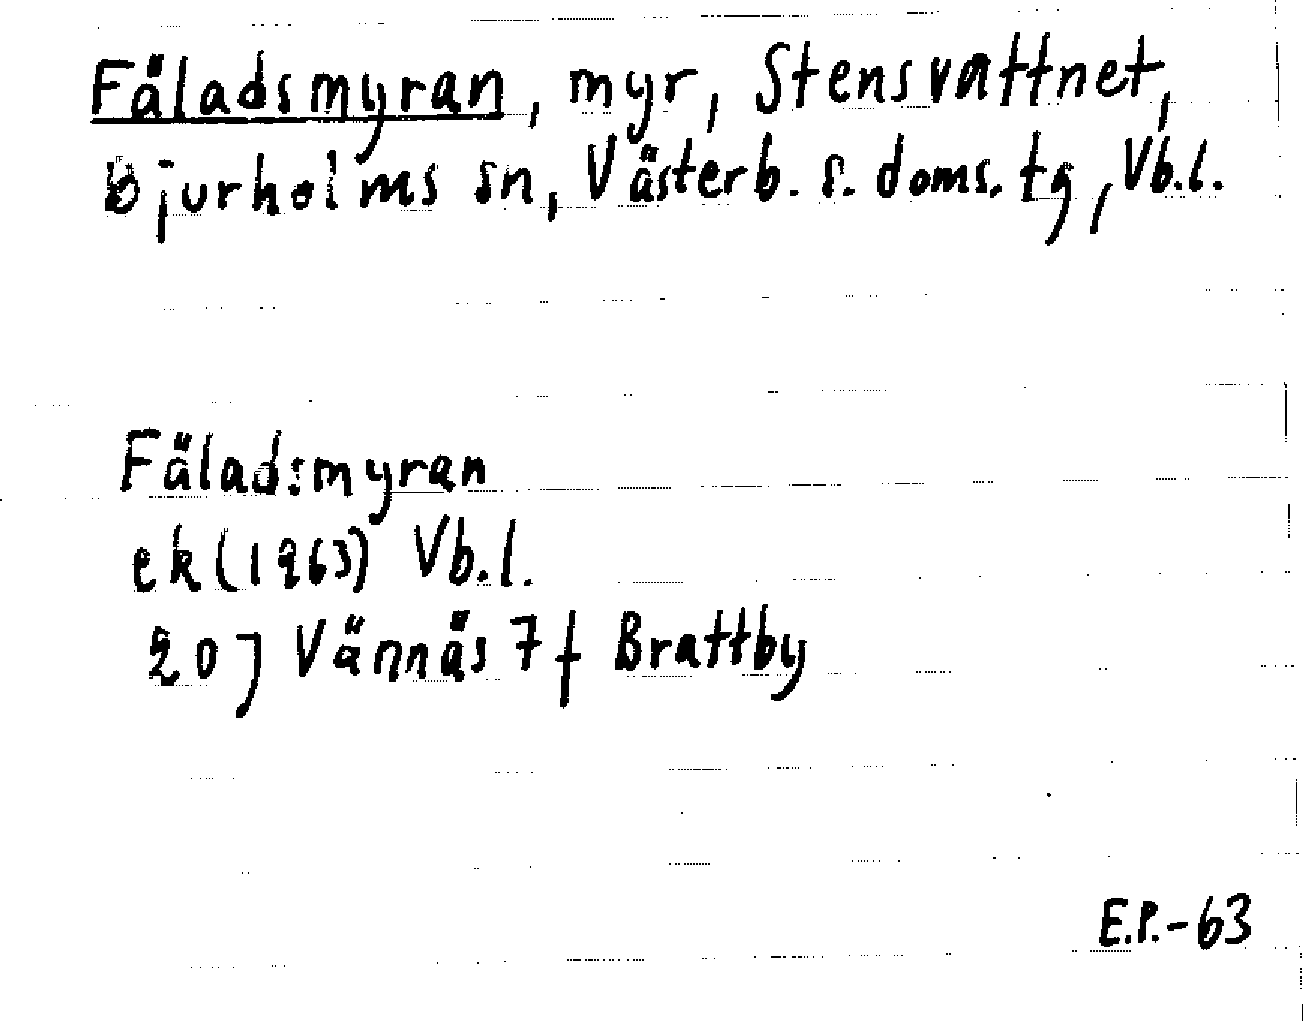 Fäladsmyran, myr, Stensvattnet,
Bjurholms sn, Västerb. s. doms. tg, Vb.l.
Fäladsmyran
ek (1963) Vb.l.
20J Vännäs 7f Brattby
E.P.-63